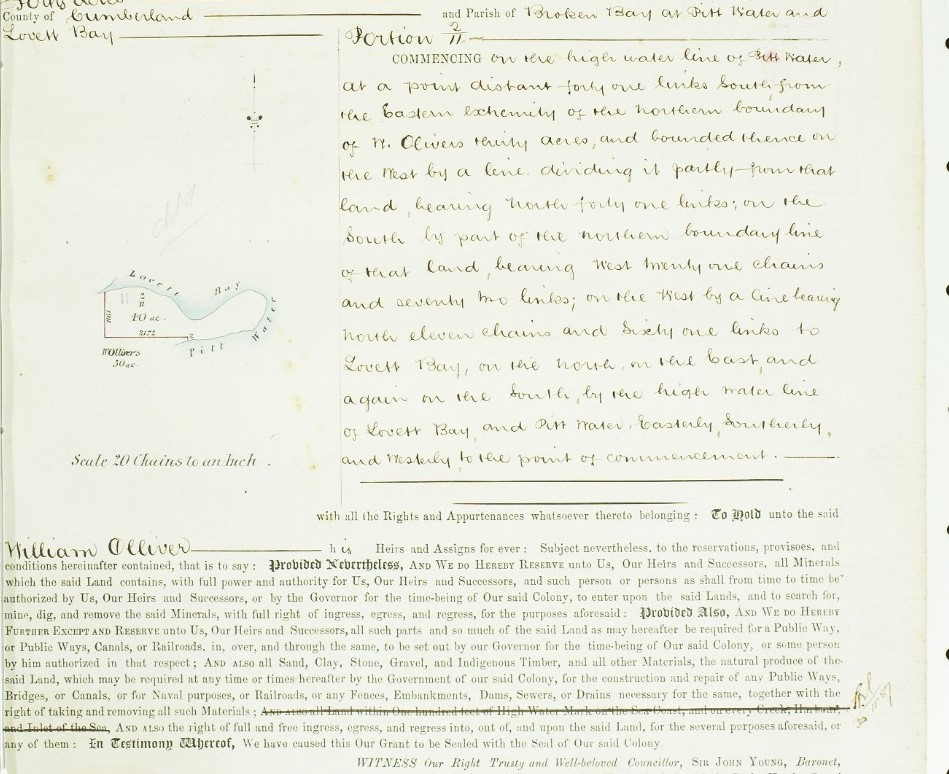 County of Cumberland and Parish of Broken Bay at Pitt Water and
Lovett Bay
Portion 2/11
COMMENCING on the high water line of Pitt Water,
at a point distant forty one links South from
the Eastern extremity of the Northern boundary
of W. Olivers thirty acres, and bounded thence on
the West by a line dividing it partly from that
land, bearing North forty one links; on the
South by part of the northern boundary line
of that land, bearing West twenty one chains
and seventy two links; on the West by a line bearing
North eleven chains and Sixty one links to
Lovett Bay, on the North, on the East, and
again on the South, by the high water line
of Lovett Bay, and Pitt Water, Easterly, Southerly,
and Westerly to the point of commencement.
Lovett Bay
11
2/11
40 ac.
1161
2172
Pitt Water
W Ollivers
30 ac.
Scale 20 Chains to an Inch.
with all the Rights and Appurtenances whatsoever thereto belonging: To Hold unto the said
William Olliver his Heirs and Assigns for ever: Subject nevertheless, to the reservations, provisoes, and
conditions hereinafter contained, that is to say: Provided Nevertheless, AND WE DO HEREBY RESERVE unto Us, Our Heirs and Successors, all Minerals
which the said Land contains, with full power and authority for Us, Our Heirs and Successors, and such person or persons as shall from time to time be
authorized by Us, Our Heirs and Successors, or by the Governor for the time-being of Our said Colony, to enter upon the said Lands, and to search for,
mine, dig, and remove the said Minerals, with full right of ingress, egress, and regress, for the purposes aforesaid: Provided Also, AND WE DO HEREBY
FURTHER EXCEPT AND RESERVE unto Us, Our Heirs and Successors, all such parts and so much of the said Land as may hereafter be required for a Public Way,
or Public Ways, Canals, or Railroads, in, over, and through the same, to be set out by our Governor for the time-being of Our said Colony, or some person
by him authorized in that respect; AND ALSO all Sand, Clay, Stone, Gravel, and Indigenous Timber, and all other Materials, the natural produce of the
said Land, which may be required at any time or times hereafter by the Government of our said Colony, for the construction and repair of any Public Ways,
Bridges, or Canals, or for Naval purposes, or Railroads, or any Fences, Embankments, Dams, Sewers, or Drains necessary for the same, together with the
right of taking and removing all such Materials; And also all Land within One hundred feet of High Water Mark on the Sea Coast, and on every Creek, Harbour,
and Inlet of the Sea, AND ALSO the right of full and free ingress, egress, and regress into, out of, and upon the said Land, for the several purposes aforesaid, or
any of them: In Testimony Whereof, We have caused this Our Grant to be Sealed with the Seal of Our said Colony
WITNESS Our Right Trusty and Well-beloved Councillor, SIR JOHN YOUNG, Baronet,